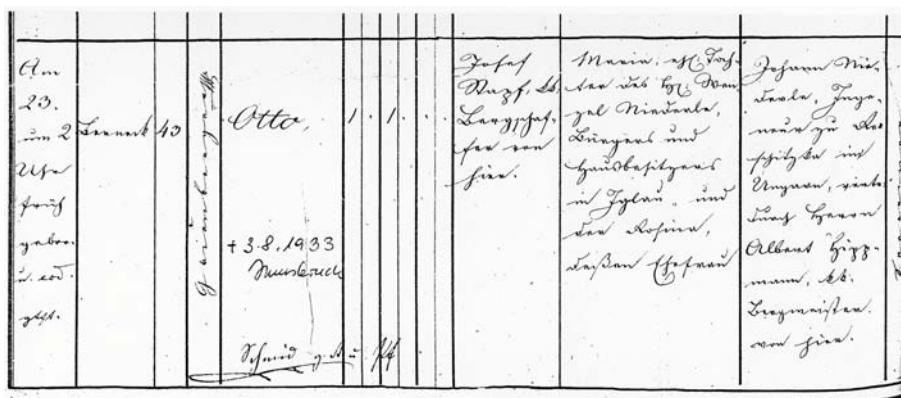 Am
23.
um 2
Uhr
früh
gebor.
u. eod.
gtft.
Berneck
43
Otto,
1 . 1 . .
† 3.8.1933
Innsbruck
Schmid
Josef
Stapf, kk.
Bergschaf-
fer von
hier.
Maria, ehl. Toch-
ter des H. Wen-
zel Niederle,
Bürgers und
Hausbesitzers
in Iglau, und
der Rosina,
deßen Ehefrau
Johann Nie-
derle, Inge-
neur zu
in
Ungarn,
durch Herrn
Albert Hipp-
mann, kk.
Bergmeister
von hier.